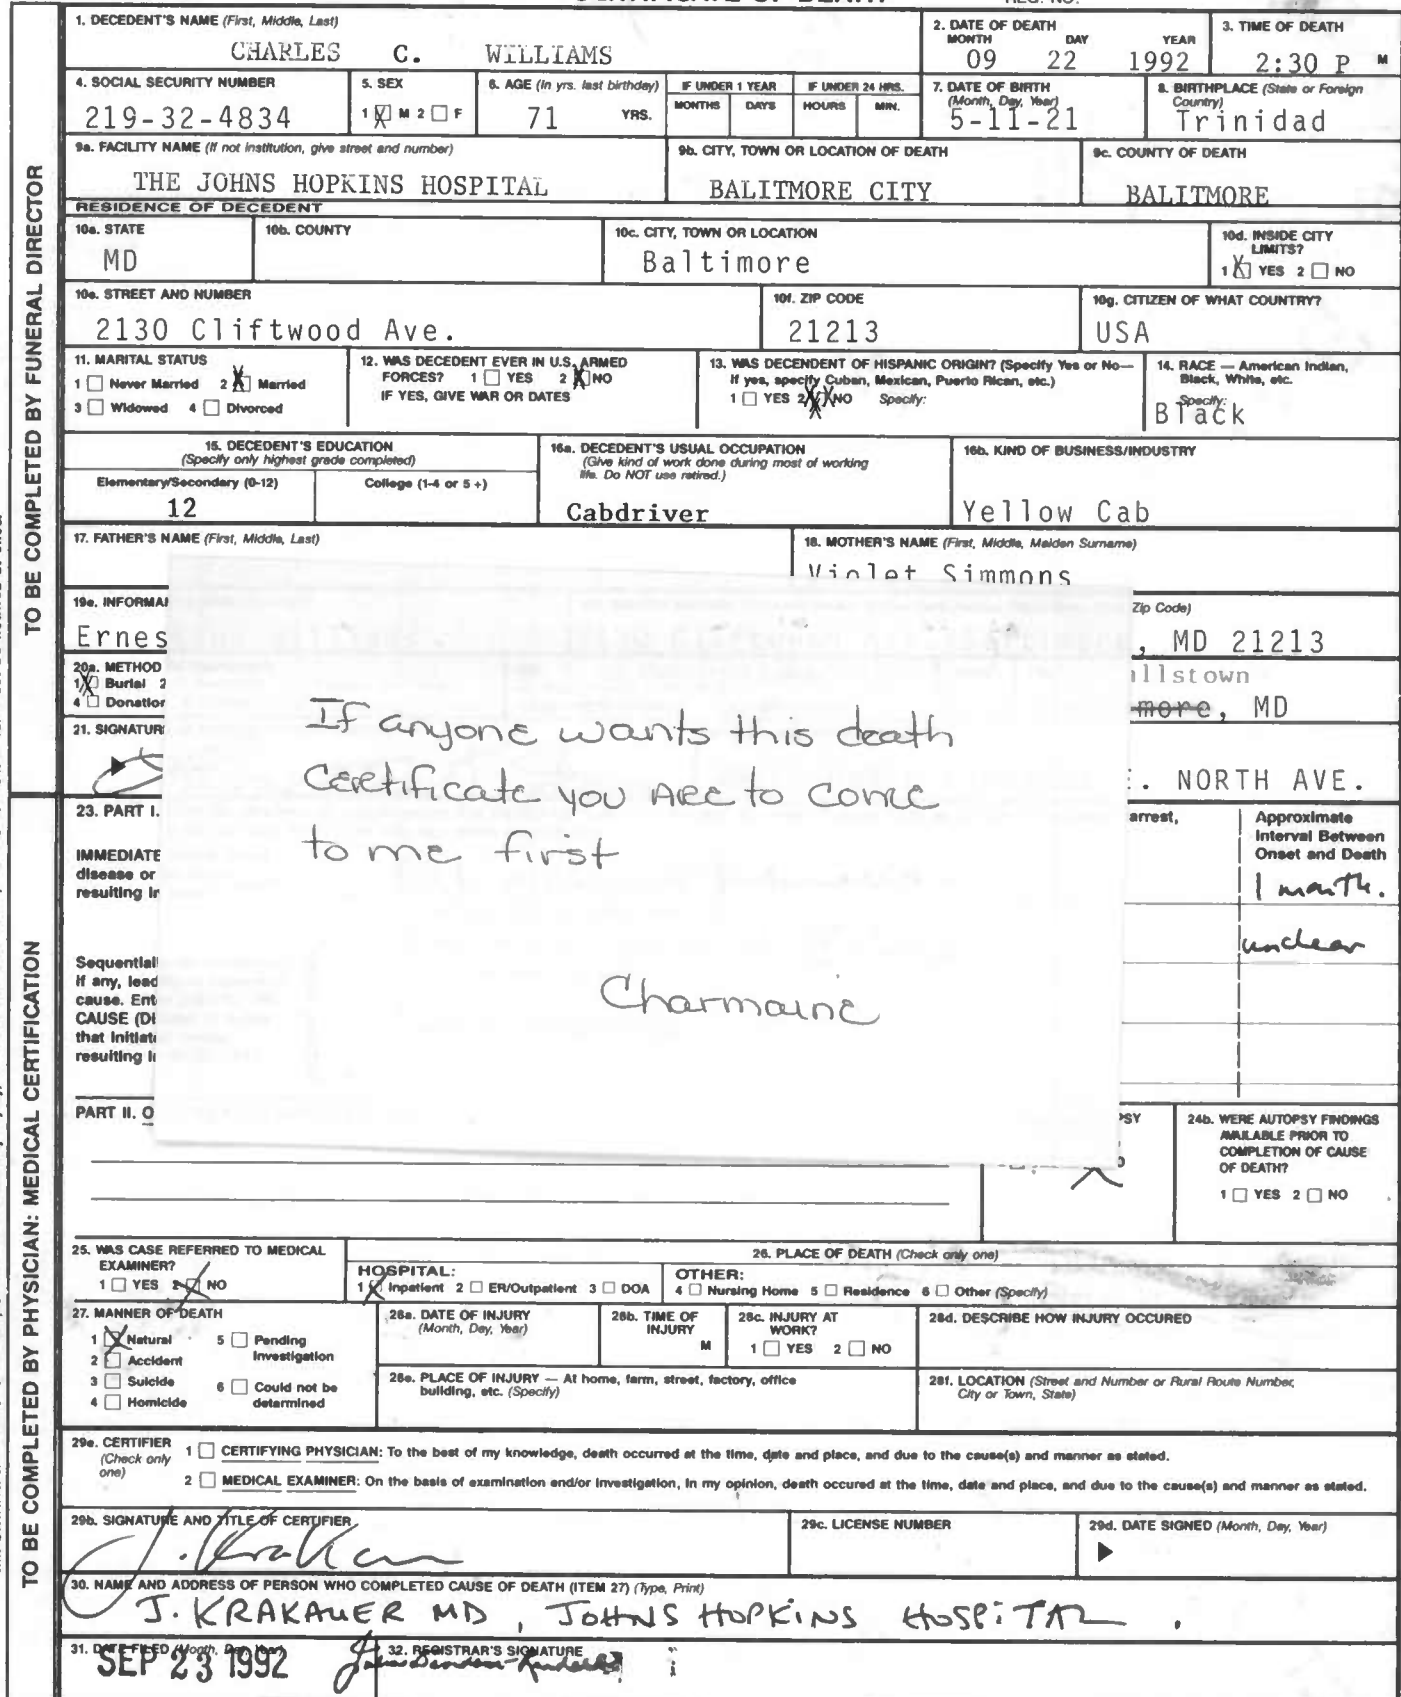 1. DECEDENT'S NAME (First, Middle, Last)
CHARLES C. WILLIAMS
2. DATE OF DEATH
MONTH DAY YEAR
09 22 1992
3. TIME OF DEATH
2:30 P M
4. SOCIAL SECURITY NUMBER
219-32-4834
5. SEX
1 M 2 F
6. AGE (In yrs. last birthday)
71 YRS.
IF UNDER 1 YEAR
MONTHS DAYS
IF UNDER 24 HRS.
HOURS MIN.
7. DATE OF BIRTH
(Month, Day, Year)
5-11-21
8. BIRTHPLACE (State or Foreign
Country)
Trinidad
9a. FACILITY NAME (If not institution, give street and number)
THE JOHNS HOPKINS HOSPITAL
9b. CITY, TOWN OR LOCATION OF DEATH
BALITMORE CITY
9c. COUNTY OF DEATH
BALITMORE
RESIDENCE OF DECEDENT
10a. STATE
MD
10b. COUNTY
10c. CITY, TOWN OR LOCATION
Baltimore
10d. INSIDE CITY
LIMITS?
1 YES 2 NO
10e. STREET AND NUMBER
2130 Cliftwood Ave.
10f. ZIP CODE
21213
10g. CITIZEN OF WHAT COUNTRY?
USA
11. MARITAL STATUS
1 Never Married 2 Married
3 Widowed 4 Divorced
12. WAS DECEDENT EVER IN U.S. ARMED
FORCES? 1 YES 2 NO
IF YES, GIVE WAR OR DATES
13. WAS DECENDENT OF HISPANIC ORIGIN? (Specify Yes or No—
If yes, specify Cuban, Mexican, Puerto Rican, etc.)
1 YES 2 NO Specify:
14. RACE — American Indian,
Black, White, etc.
Specify:
Black
15. DECEDENT'S EDUCATION
(Specify only highest grade completed)
Elementary/Secondary (0-12) College (1-4 or 5+)
12
16a. DECEDENT'S USUAL OCCUPATION
(Give kind of work done during most of working
life. Do NOT use retired.)
Cabdriver
16b. KIND OF BUSINESS/INDUSTRY
Yellow Cab
17. FATHER'S NAME (First, Middle, Last)
18. MOTHER'S NAME (First, Middle, Maiden Surname)
Violet Simmons
19a. INFORMA
Zip Code)
Ernes
, MD 21213
20a. METHOD
1 Burial 2
4 Donation
llstown
more, MD
21. SIGNATUR
. NORTH AVE.
If anyone wants this death
certificate you ARE to come
to me first
Charmaine
23. PART I.
arrest,
Approximate
Interval Between
Onset and Death
IMMEDIATE
disease or
resulting in
1 month.
unclear
Sequential
if any, lead
cause. Ent
CAUSE (DI
that initiat
resulting i
PART II. O
PSY
24b. WERE AUTOPSY FINDINGS
AVAILABLE PRIOR TO
COMPLETION OF CAUSE
OF DEATH?
1 YES 2 NO
25. WAS CASE REFERRED TO MEDICAL
EXAMINER?
1 YES 2 NO
26. PLACE OF DEATH (Check only one)
HOSPITAL:
1 Inpatient 2 ER/Outpatient 3 DOA
OTHER:
4 Nursing Home 5 Residence 6 Other (Specify)
27. MANNER OF DEATH
1 Natural 5 Pending
Investigation
2 Accident
3 Suicide 6 Could not be
determined
4 Homicide
28a. DATE OF INJURY
(Month, Day, Year)
28b. TIME OF
INJURY
M
28c. INJURY AT
WORK?
1 YES 2 NO
28d. DESCRIBE HOW INJURY OCCURED
28e. PLACE OF INJURY — At home, farm, street, factory, office
building, etc. (Specify)
28f. LOCATION (Street and Number or Rural Route Number,
City or Town, State)
29a. CERTIFIER
(Check only
one)
1 CERTIFYING PHYSICIAN: To the best of my knowledge, death occurred at the time, date and place, and due to the cause(s) and manner as stated.
2 MEDICAL EXAMINER: On the basis of examination and/or investigation, in my opinion, death occured at the time, date and place, and due to the cause(s) and manner as stated.
29b. SIGNATURE AND TITLE OF CERTIFIER
J. Krakauer
29c. LICENSE NUMBER
29d. DATE SIGNED (Month, Day, Year)
30. NAME AND ADDRESS OF PERSON WHO COMPLETED CAUSE OF DEATH (ITEM 27) (Type, Print)
J. KRAKAUER MD, JOHNS HOPKINS HOSPITAL.
31. DATE FILED (Month, Day, Year)
SEP 23 1992
32. REGISTRAR'S SIGNATURE
TO BE COMPLETED BY FUNERAL DIRECTOR
TO BE COMPLETED BY PHYSICIAN: MEDICAL CERTIFICATION